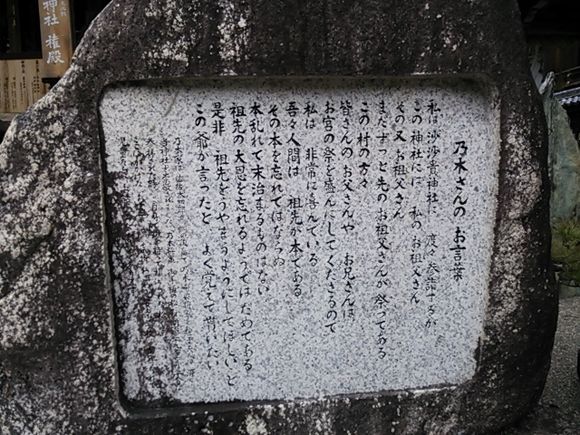 乃木さんの お言葉
私は沙沙貴神社に 度々参詣するが
この神社には 私のお祖父さん
その又お祖父さん
まだずっと先のお祖父さんが祭ってある
この村の方々
皆さんのお父さんや お兄さんは
お宮の祭を盛んにしてくださるので
私は 非常に喜んでいる
吾々人間は 祖先が本である
その本を忘れてはならぬ
本乱れて末治まるものはない
祖先の大恩を忘れるようではだめである
是非 祖先をうやまうようにしてほしい と
この爺が言ったと よく覚えて貰いたい
神社 権殿